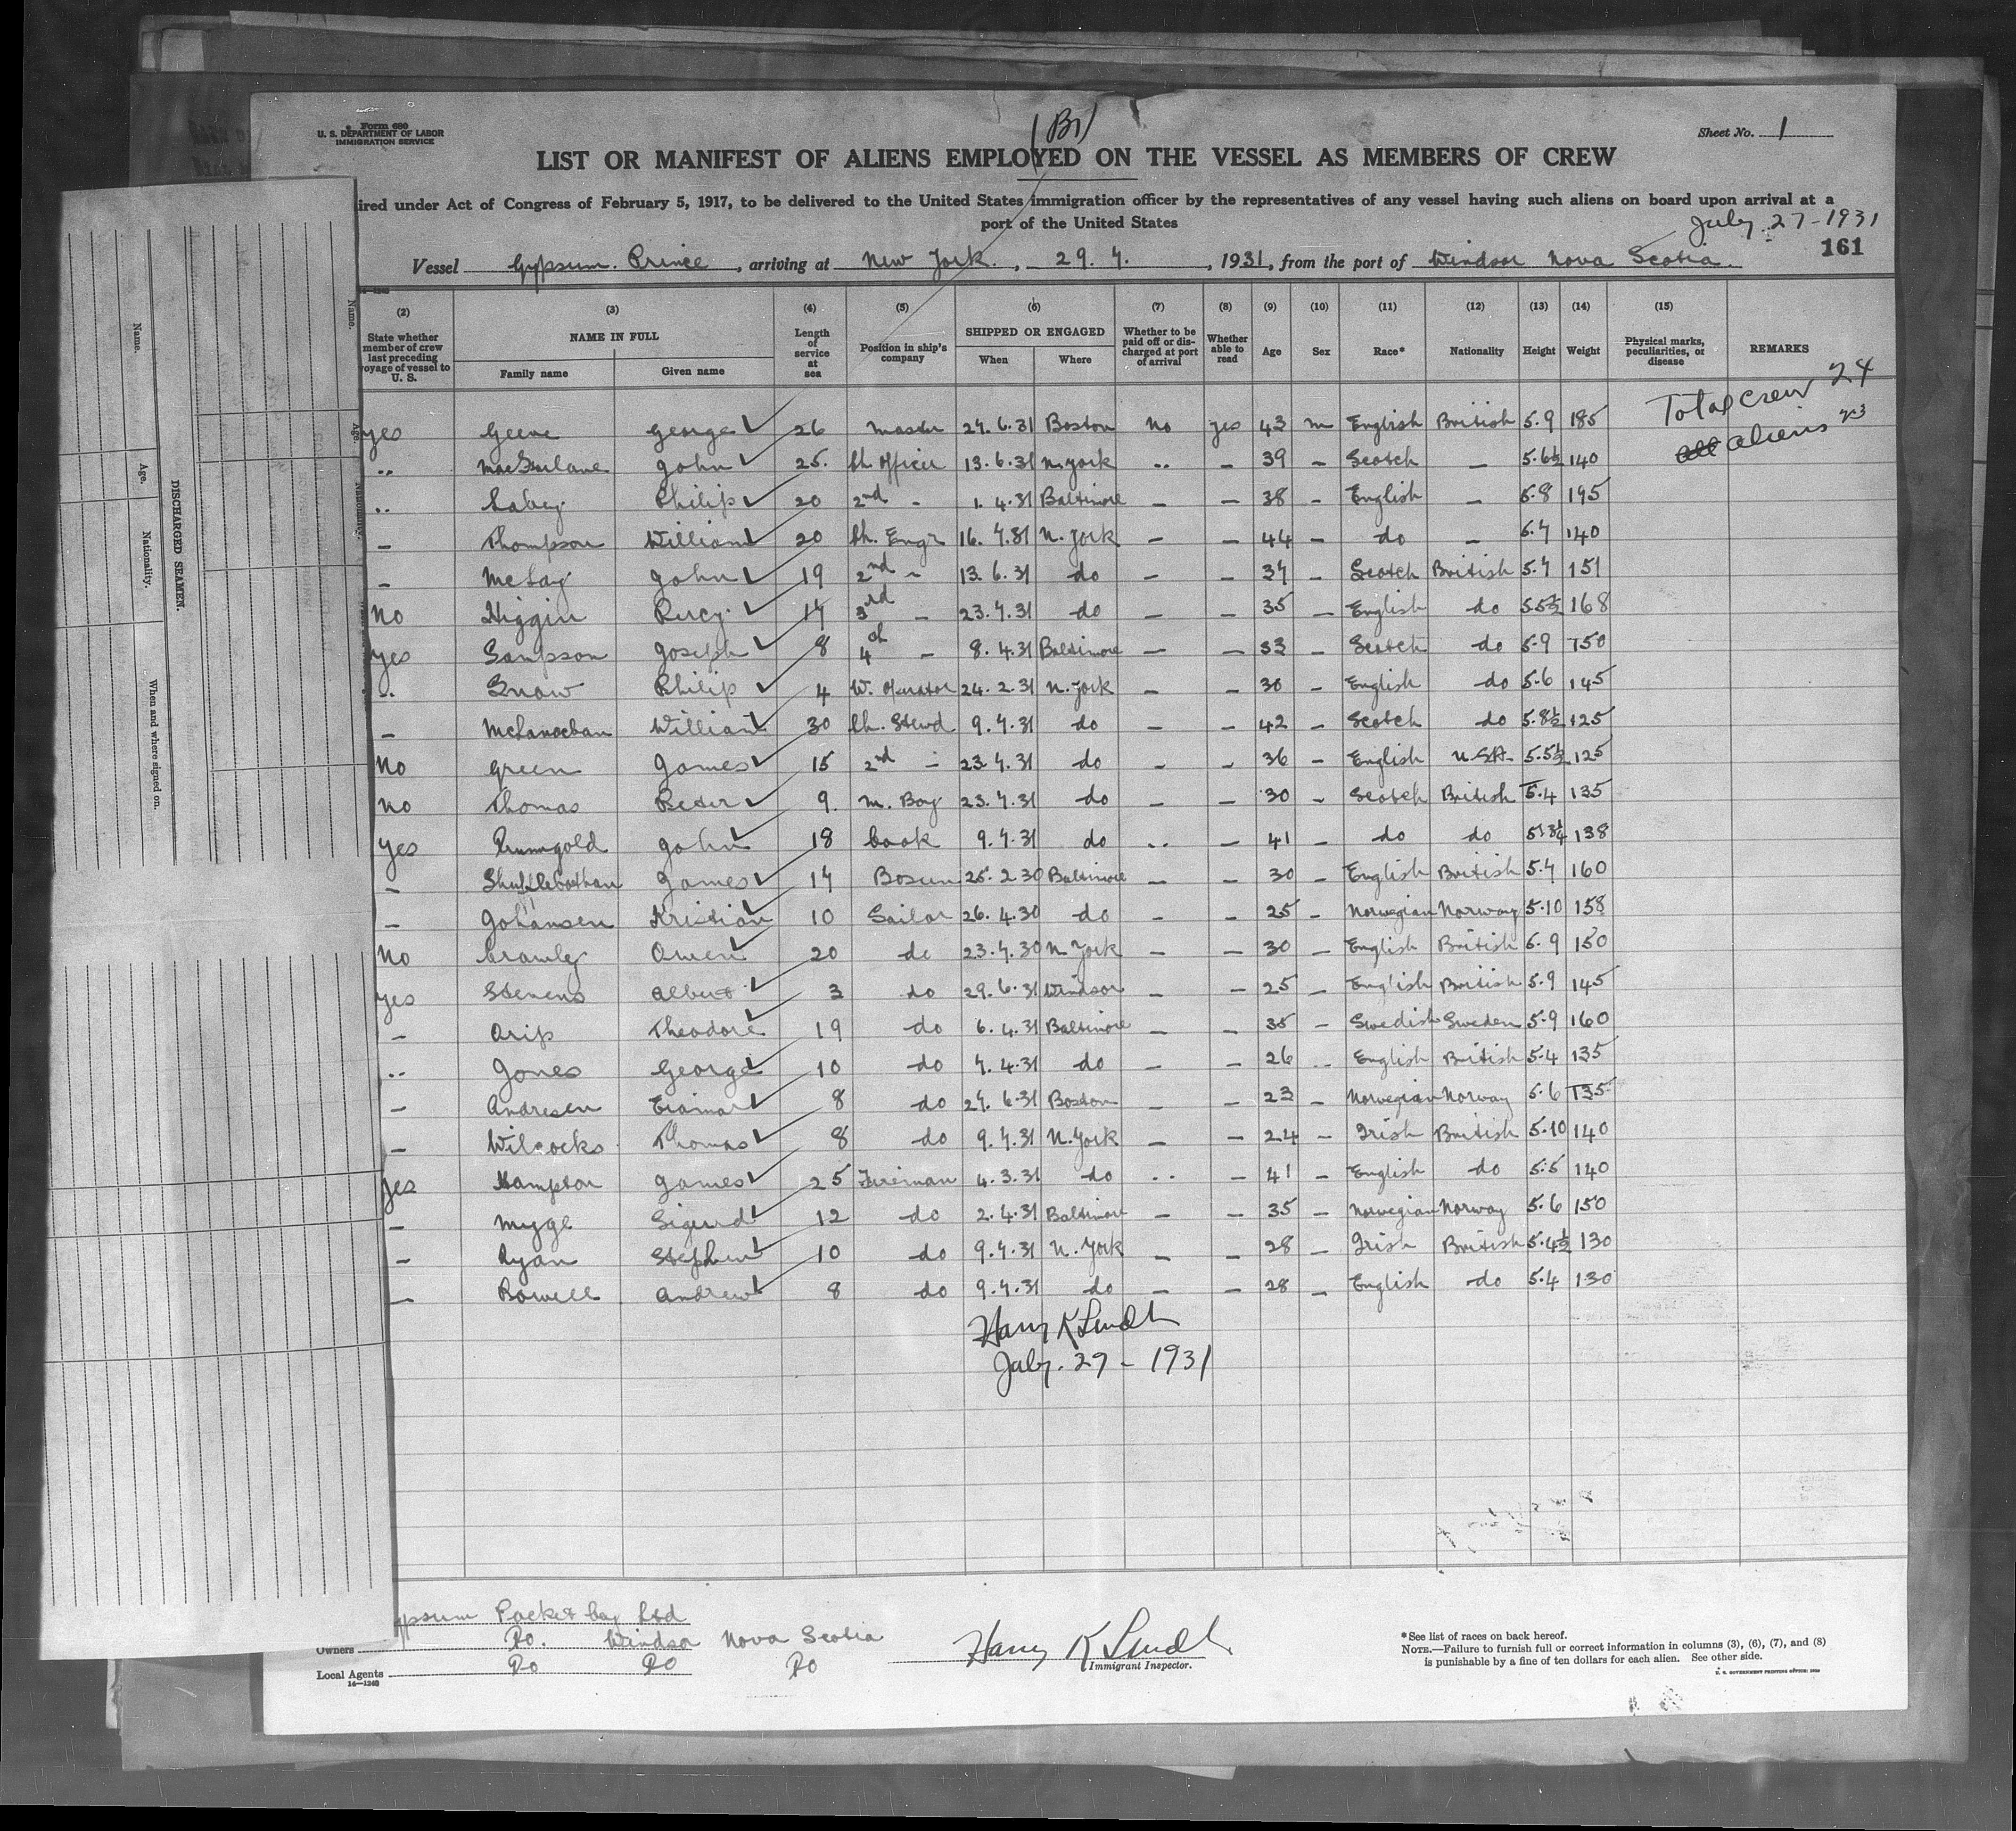 Form 680
U. S. DEPARTMENT OF LABOR
IMMIGRATION SERVICE
(Br)
Sheet No. 1
LIST OR MANIFEST OF ALIENS EMPLOYED ON THE VESSEL AS MEMBERS OF CREW
ired under Act of Congress of February 5, 1917, to be delivered to the United States immigration officer by the representatives of any vessel having such aliens on board upon arrival at a
port of the United States
July 27-1931
161
Vessel Gypsum Prince, arriving at New York, 29. 7., 1931, from the port of Windsor Nova Scotia
(2) (3) (4) (5) (6) (7) (8) (9) (10) (11) (12) (13) (14) (15)
State whether member of crew last preceding voyage of vessel to U. S.
NAME IN FULL
Family name Given name
Length of service at sea
Position in ship's company
SHIPPED OR ENGAGED
When Where
Whether to be paid off or discharged at port of arrival
Whether able to read
Age Sex Race* Nationality Height Weight
Physical marks, peculiarities, or disease
REMARKS
Total crew 24
all aliens 23
yes George 26 Master 27.6.31 Boston No yes 43 m English British 5.9 185
.. MacFarlane John 25. Ch. Officer 13.6.31 N. York .. – 39 – Scotch – 5.6½ 140
.. Philip 20 2nd – 1.4.31 Baltimore – – 38 – English – 5.8 195
– Thompson William 20 Ch. Engr 16.7.31 N. York – – 44 – do – 5.7 140
– McLay John 19 2nd – 13.6.31 do – – 37 – Scotch British 5.7 151
No Higgin Percy 17 3rd – 23.7.31 do – – 35 – English do 5.5½ 168
yes Sampson Joseph 8 4th – 8.4.31 Baltimore – – 33 – Scotch do 5.9 150
.. Snow Philip 4 W. Operator 24.2.31 N. York – – 30 – English do 5.6 145
– William 30 Ch. Stewd 9.7.31 do – – 42 – Scotch do 5.8½ 125
No Green James 15 2nd – 23.7.31 do – – 36 – English U.S.A. 5.5½ 125
No Thomas Peter 9. M. Boy 23.7.31 do – – 30 – Scotch British 5.4 135
yes John 18 Cook 9.7.31 do .. – 41 – do do 138
– Shufflebotham James 17 Bosun 25.2.30 Baltimore – – 30 – English British 5.7 160
– Johansen Kristian 10 Sailor 26.4.30 do – – 25 – Norwegian Norway 5.10 158
No Crawley Owen 20 do 23.7.30 N. York – – 30 – English British 5.9 150
yes Stevens Albert 3 do 29.6.31 Windsor – – 25 – English British 5.9 145
– Arip Theodore 19 do 6.4.31 Baltimore – – 35 – Swedish Sweden 5.9 160
.. Jones George 10 do 7.4.31 do – – 26 .. English British 5.4 135
– Andresen 8 do 27.6.31 Boston – – 23 – Norwegian Norway 5.6 135
– Wilcocks Thomas 8 do 9.7.31 N. York – – 24 – Irish British 5.10 140
yes Hampton James 25 Fireman 4.3.31 do .. – 41 – English do 5.5 140
– Myge Sigurd 12 do 2.4.31 Baltimore – – 35 – Norwegian Norway 5.6 150
– Ryan Stephen 10 do 9.7.31 N. York – – 28 – Irish British 5.4½ 130
– Powell Andrew 8 do 9.7.31 do – – 28 – English do 5.4 130
Harry K
July. 29 – 1931
Name.
Age.
Nationality.
When and where signed on.
DISCHARGED SEAMEN.
Name.
Age.
Nationality.
ypsum Packet Coy Ltd
Owners Do. Windsor Nova Scotia
Local Agents Do Do Do
14—1240
Harry K
Immigrant Inspector.
*See list of races on back hereof.
NOTE.—Failure to furnish full or correct information in columns (3), (6), (7), and (8)
is punishable by a fine of ten dollars for each alien. See other side.
U. S. GOVERNMENT PRINTING OFFICE: